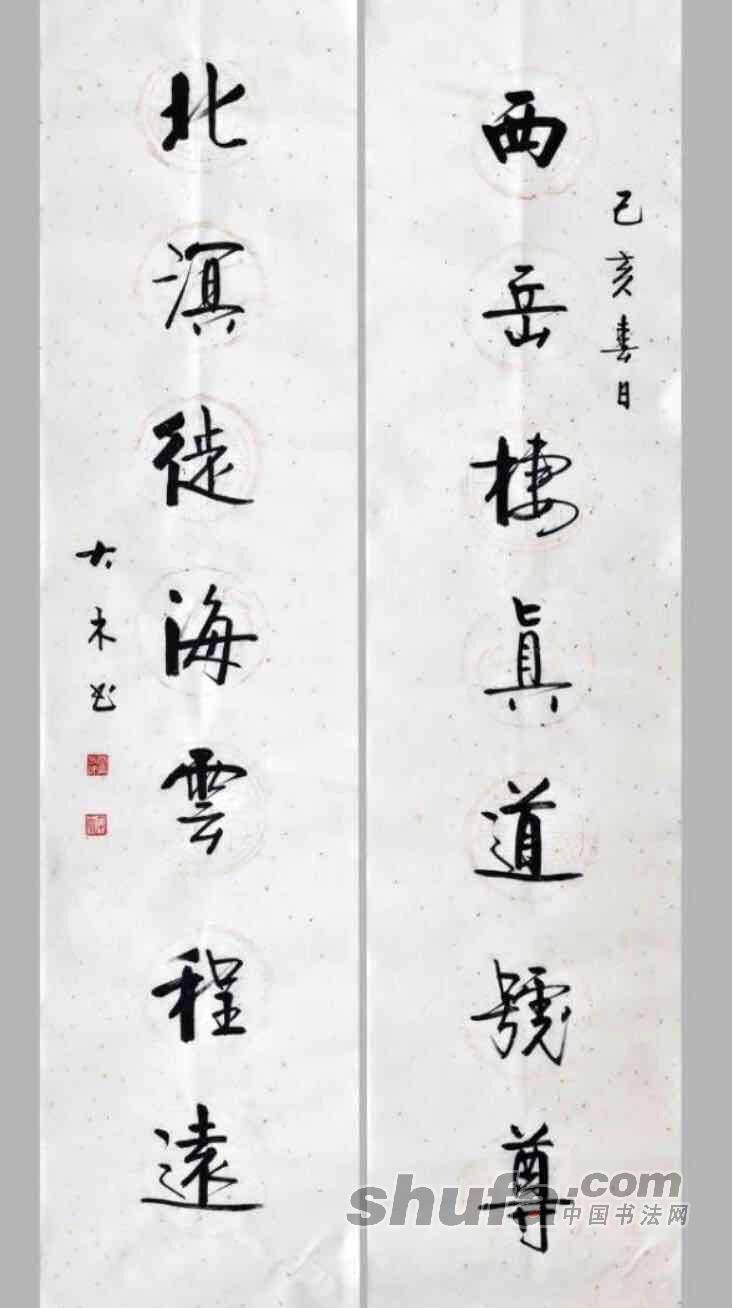 己亥春日
西岳棲真道號尊
北溟徙海雲程遠
大木书
shufa.com
中国书法网